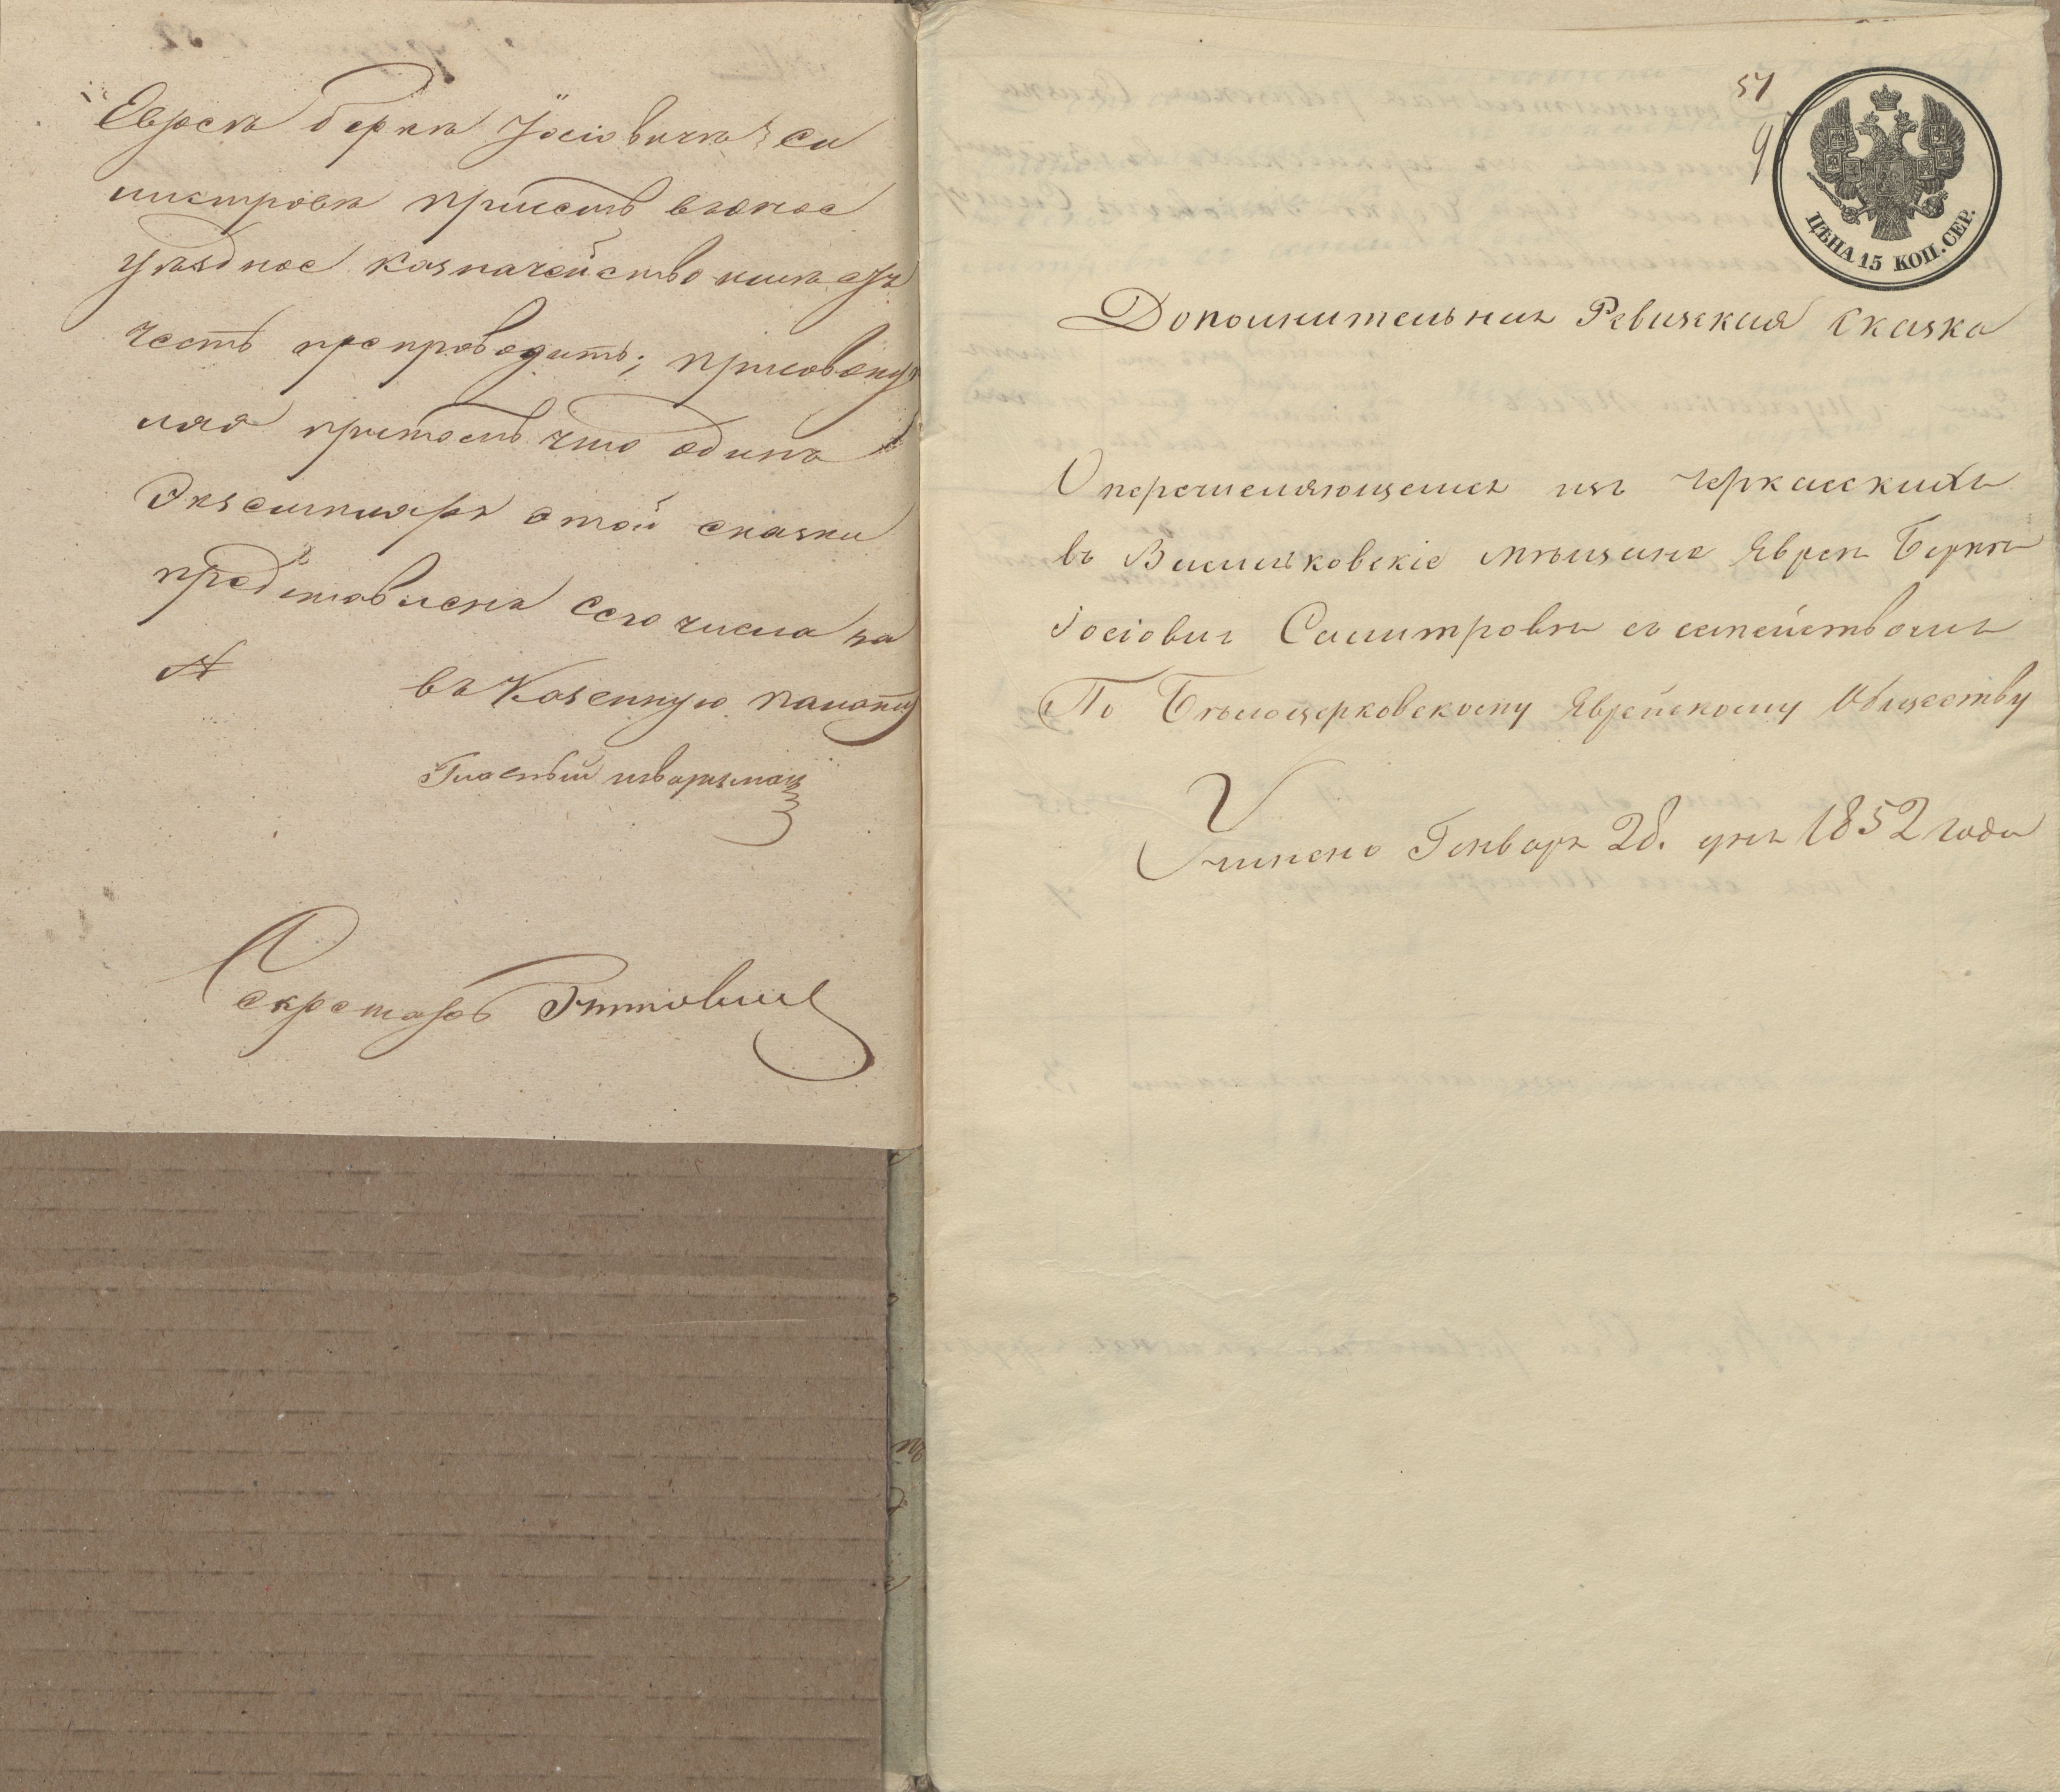 Еврея берка Іосіовича Си
листрова при семъ въ оное
уѣздное казначейство имѣетъ
честь препроводить; присовоку
пляя притомъ что одинъ
Экземпляръ этой сказки
представленъ сего числа за
№ въ Казенную палату
Гласный
Секретарь
51
9
ЦѢНА 15 КОП. СЕР.
Дополнительная Ревизская Сказка
О перечисляющемся изъ Черкасскихъ
въ Васильковскіе мѣщане Яврея Берко
Іосіовичъ Силитровъ съ семействомъ
По Бѣлоцерковскому Яврейскому Обществу
Учинено Генваря 28. дня 1852 года